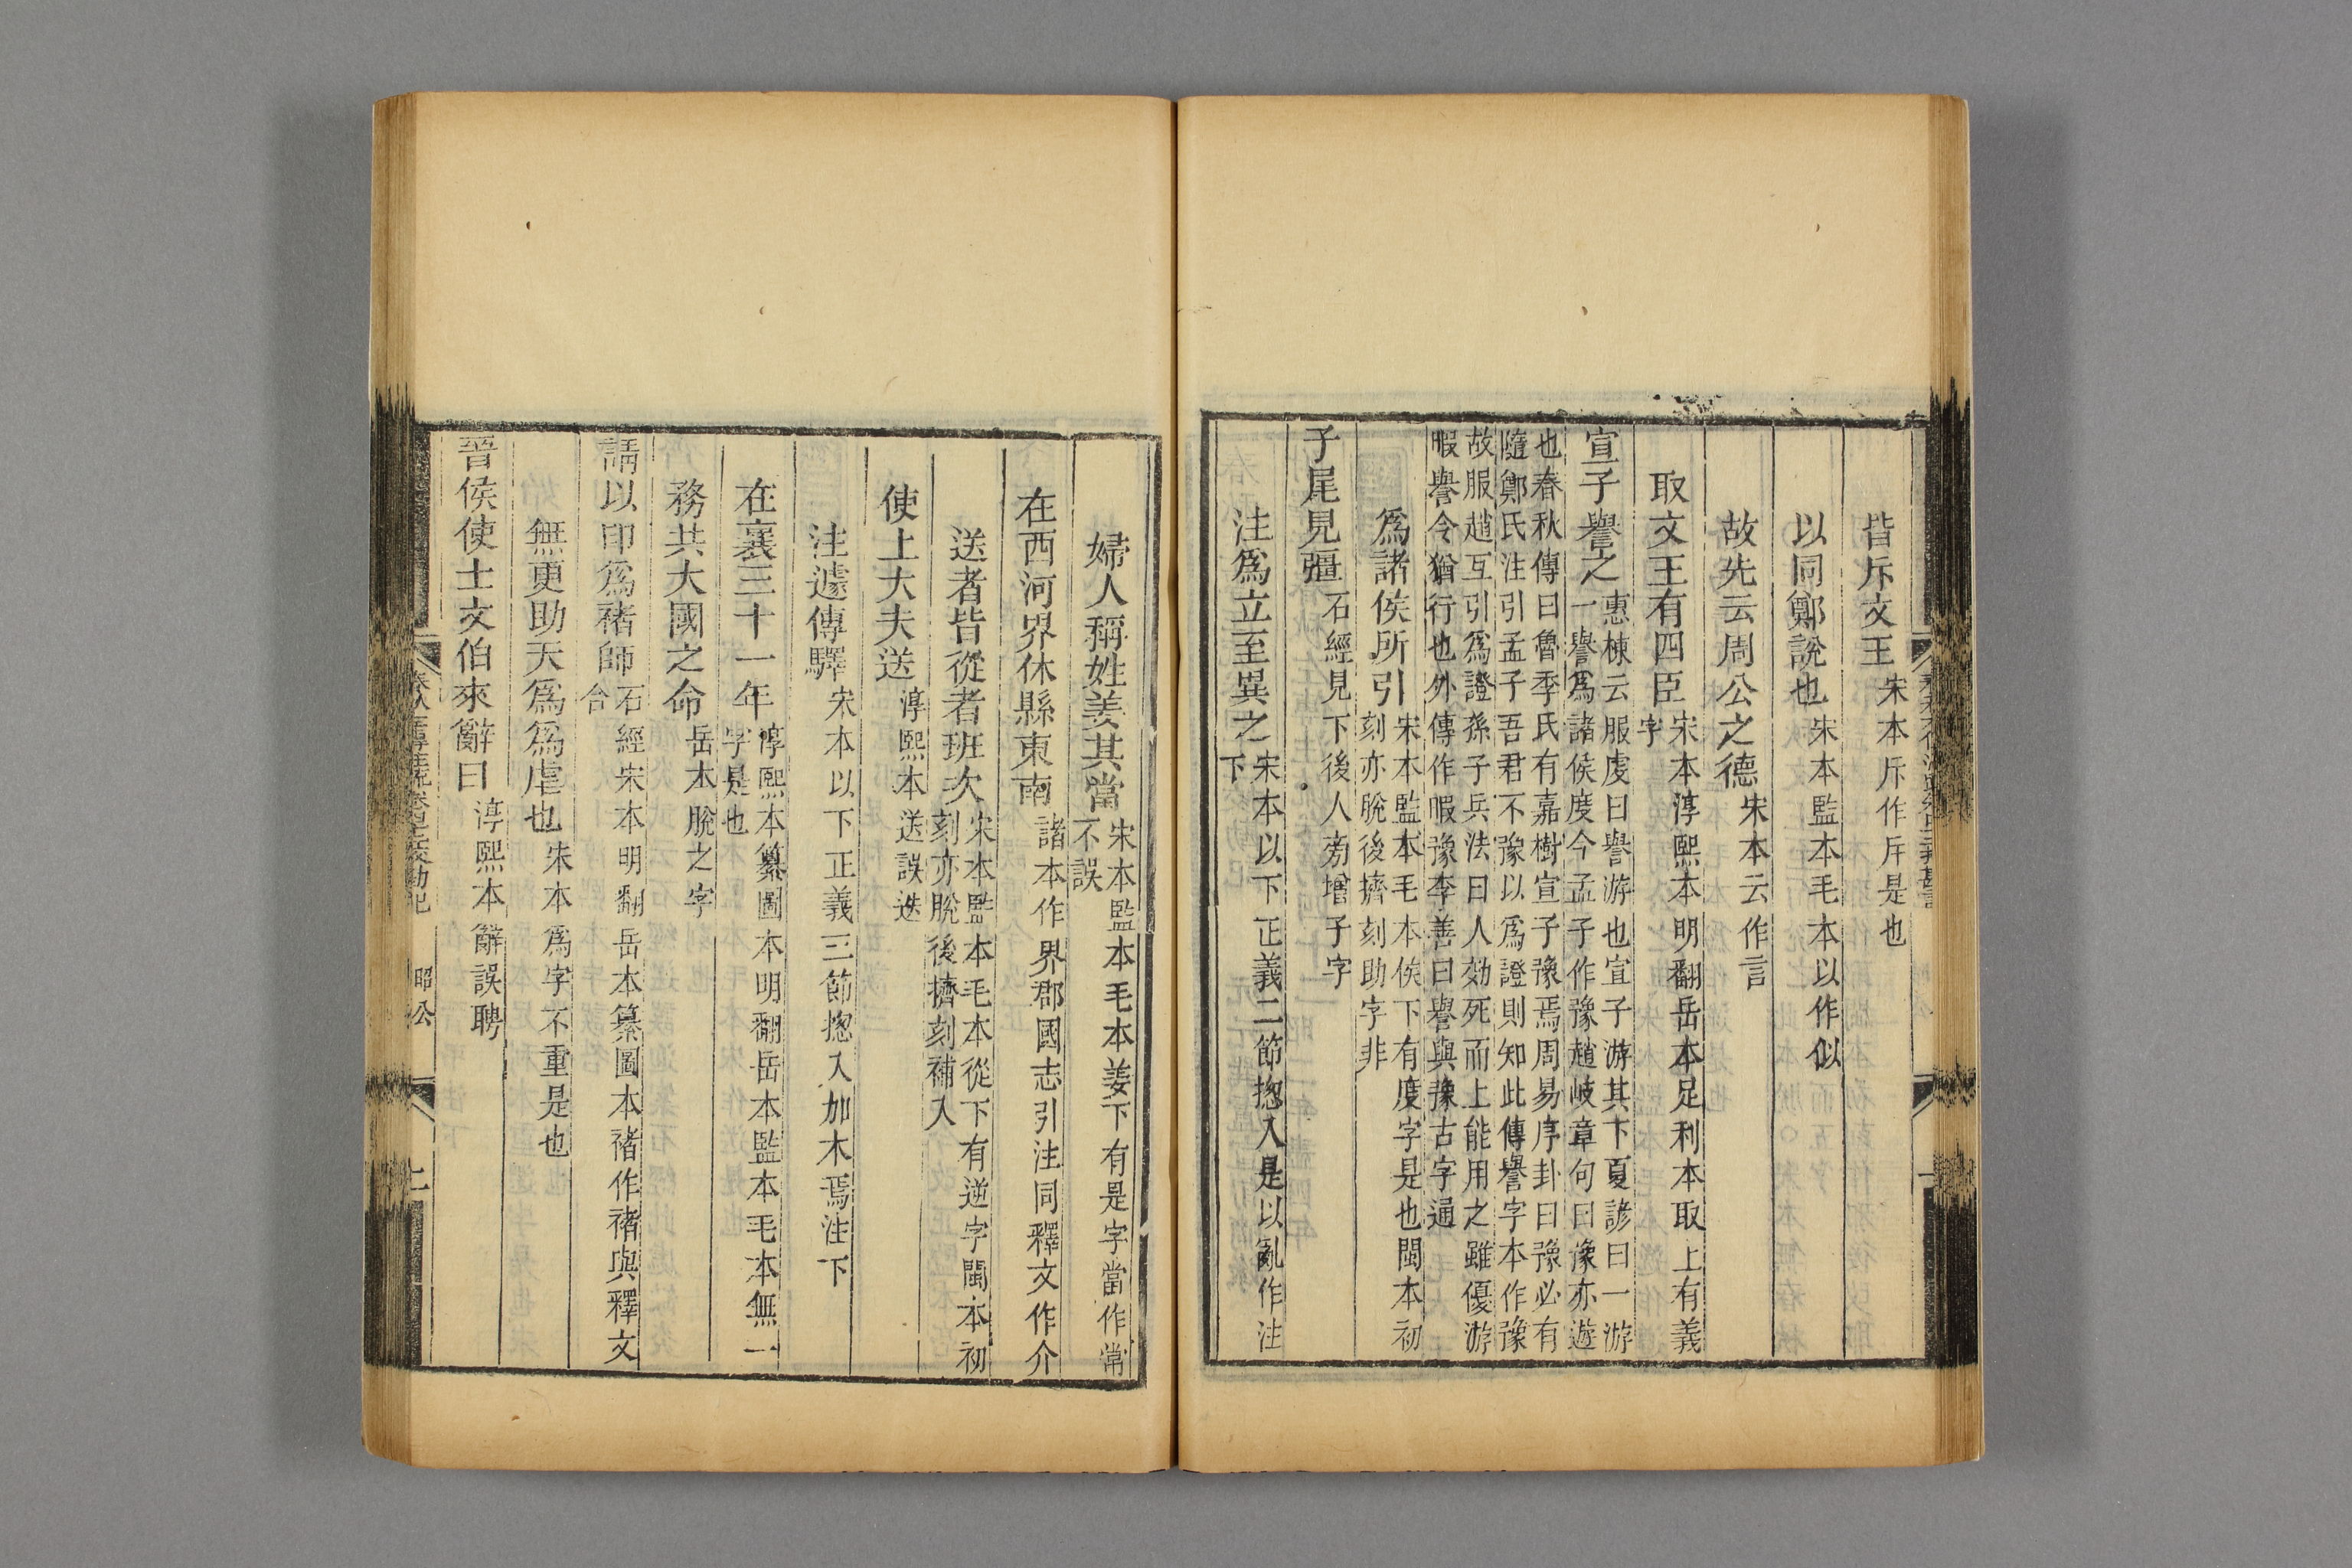 皆斥文王宋本斥作斤是也
以同鄭說也宋本監本毛本以作似
故先云周公之德宋本云作言
取文王有四臣宋本淳熙本明翻岳本足利本取上有義
字
宣子譽之惠棟云服虔曰譽游也宣子游其下夏諺曰一游
一譽爲諸侯度今孟子作豫趙岐章句曰豫亦遊
也春秋傳曰魯季氏有嘉樹宣子豫焉周易序卦曰豫必有
隨鄭氏注引孟子吾君不豫以爲證則知此傳譽字本作豫
故服趙互引爲證孫子兵法曰人効死而上能用之雖優游
暇譽令猶行也外傳作暇豫李善曰譽與豫古字通
爲諸侯所引宋本監本毛本侯下有度字是也閩本初
刻亦脫後擠刻助字非
子尾見彊石經見下後人旁增子字
注爲立至異之宋本以下正義二節摠入是以亂作注
下
婦人稱姓姜其當宋本監本毛本姜下有是字當作常
不誤
在西河界休縣東南諸本作界郡國志引注同釋文作介
送者皆從者班次宋本監本毛本從下有逆字閩本初
刻亦脫後擠刻補入
使上大夫送淳熙本送誤迭
注遽傳驛宋本以下正義三節摠入加木焉注下
在襄三十一年淳熙本纂圖本明翻岳本監本毛本無一
字是也
務共大國之命岳本脫之字
請以印爲褚師石經宋本明翻岳本纂圖本褚作禇與釋文
合
無更助天爲爲虐也宋本爲字不重是也
晉侯使士文伯來辭曰淳熙本辭誤聘
昭公